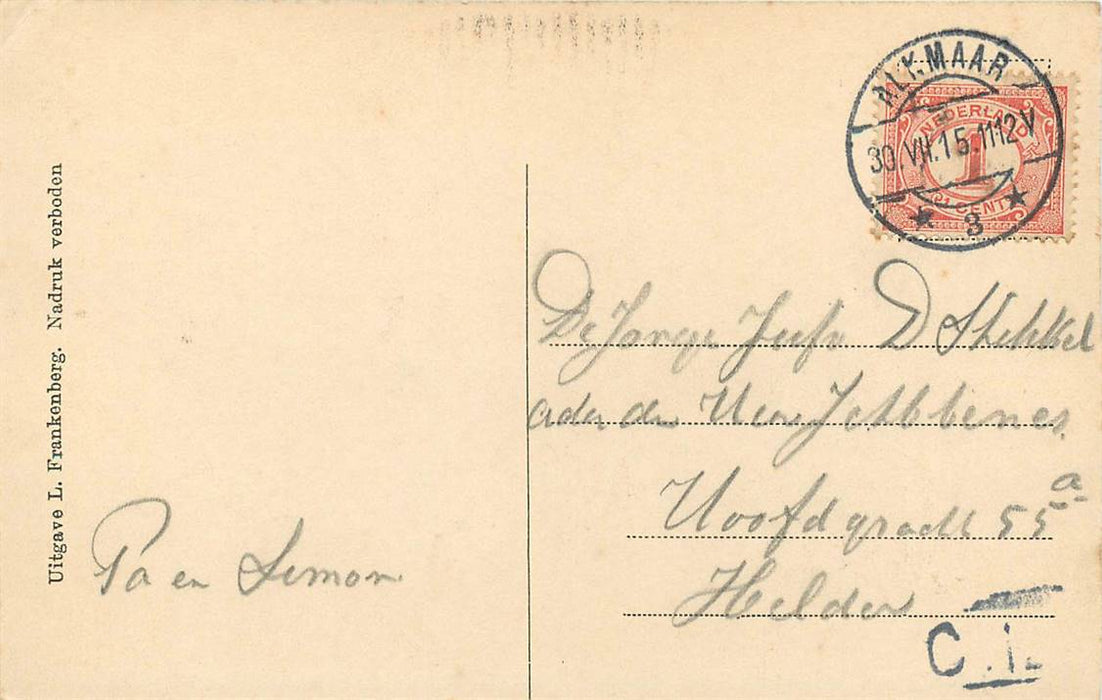 Uitgave L. Frankenberg. Nadruk verboden
ALKMAAR
30.VII.15.11-12V
3
NEDERLAND
1
1 CENT
De Jonge Jufr D Stikkel
ade de Heer J Stbbenes
Hoofdgracht 55a
Helder
Pa en Simon
C.1.